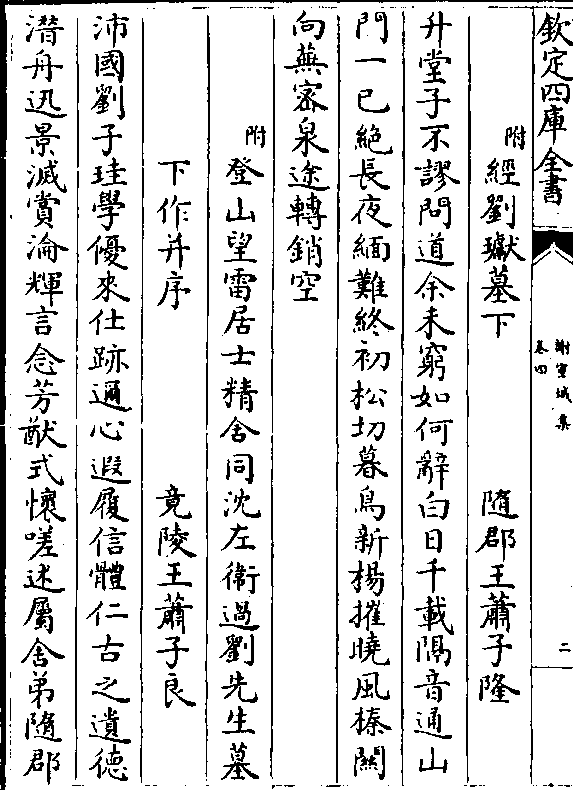 欽定四庫全書
謝宣城集
卷四
二
附 經劉瓛墓下 隨郡王蕭子隆
升堂子不謬問道余未窮如何辭白日千載隔音通山
門一已絶長夜緬難終初松切暮鳥新楊摧曉風榛關
向蕪宻泉途轉銷空
附 登山望雷居士精舍同沈左衛過劉先生墓
下作并序 竟陵王蕭子良
沛國劉子珪學優來仕跡邇心遐履信體仁古之遺德
潛舟迅景滅賞淪輝言念芳猷式懷嗟述屬舍弟隨郡